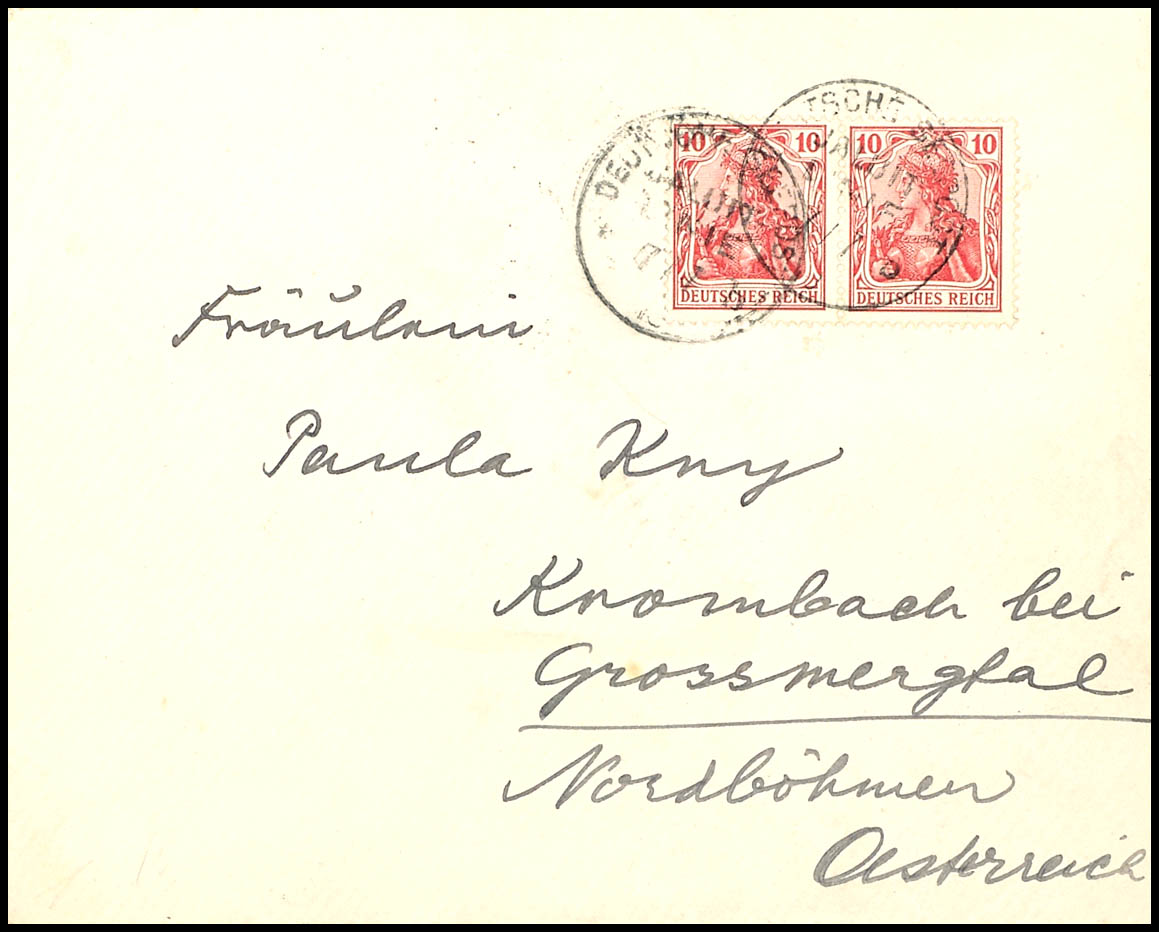 10 10 10 10
DEUTSCHES REICH DEUTSCHES REICH
Fräulein
Paula Kny
Krombach bei
Grossmergtal
Nordböhmen
Oesterreich